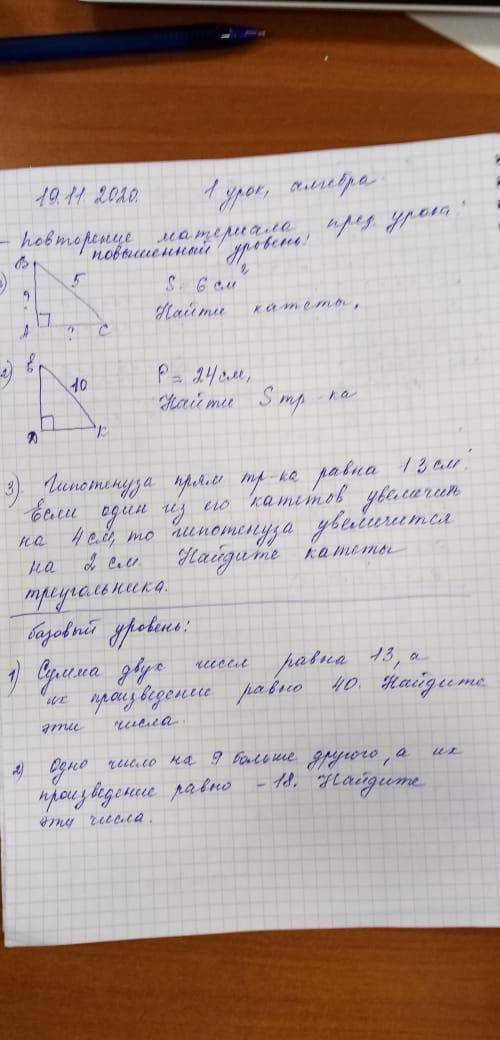 19.11.2020. 1 урок, алгебра
- повторение материала пред. урока:
повышенный уровень:
B
5
?
A ? C
S = 6 см²
Найти катеты.
2) E
10
D K
P = 24 см,
Найти S тр-ка
3). Гипотенуза прям тр-ка равна 13 см.
Если один из его катетов увеличить
на 4 см, то гипотенуза увеличится
на 2 см. Найдите катеты
треугольника.
базовый уровень:
1) Сумма двух чисел равна 13, а
их произведение равно 40. Найдите
эти числа.
2) Одно число на 9 больше другого, а их
произведение равно -18. Найдите
эти числа.